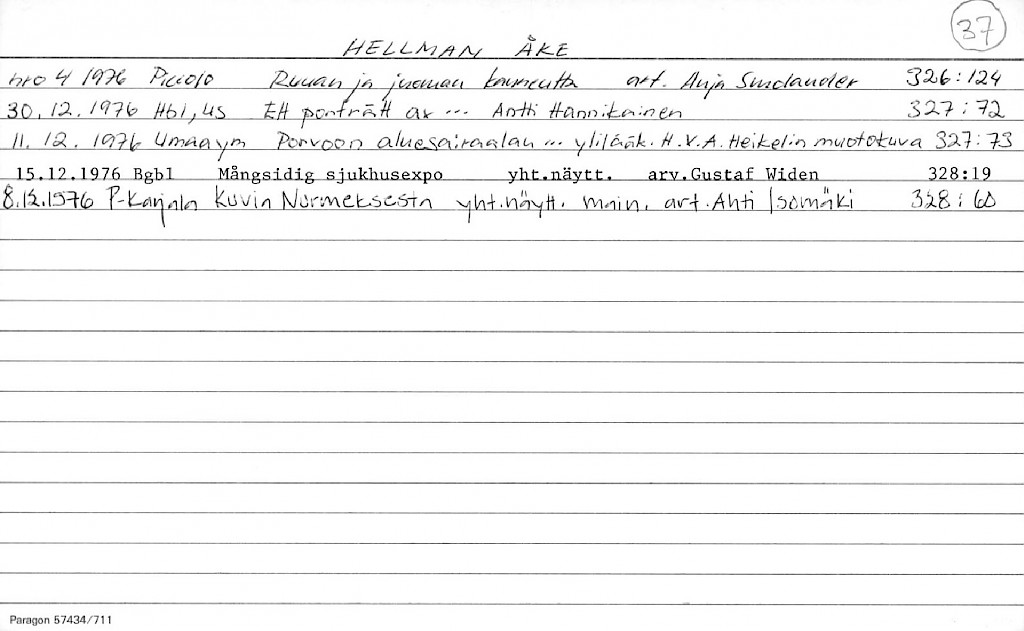 37
HELLMAN ÅKE
nro 4 1976 Piccolo Ruuan ja juoman kauneutta art. Anja Smolander 326:124
30.12.1976 Hbl, US Ett porträtt av ... Antti Hannikainen 327:72
11.12.1976 Umaaym Porvoon aluesairaalan ... ylilääk. H.V.A. Heikelin muotokuva 327:73
15.12.1976 Bgbl Mångsidig sjukhusexpo yht.näytt. arv.Gustaf Widen 328:19
8.12.1976 P-Karjala Kuvin Nurmeksesta yht.näytt. main. art. Ahti Isomäki 328:60
Paragon 57434/711